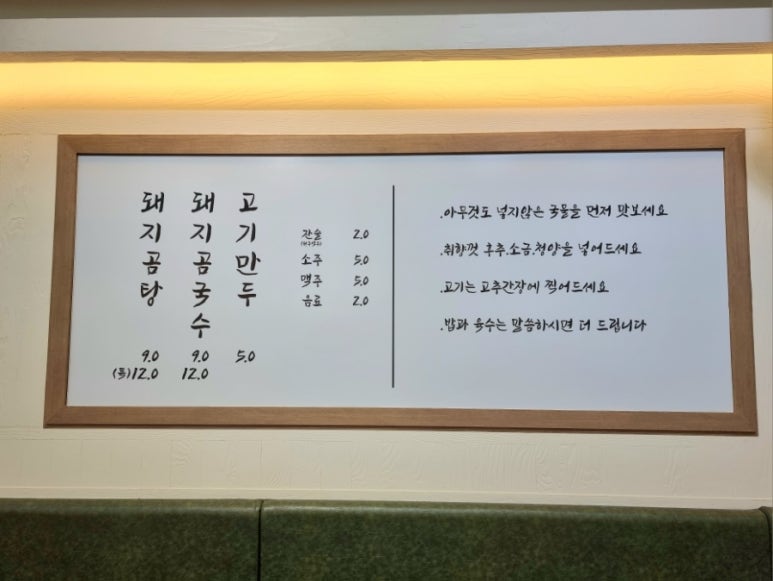 돼지곰탕
9.0
(특)12.0
돼지곰국수
9.0
12.0
고기만두
5.0
잔술 2.0
소주 5.0
맥주 5.0
음료 2.0
.아무것도 넣지않은 국물을 먼저 맛보세요
.취향껏 후추.소금.청양을 넣어드세요
.고기는 고추간장에 찍어드세요
.밥과 육수는 말씀하시면 더 드립니다